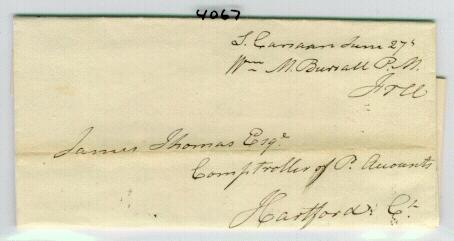 4067
S. Canaan June 27th
Wm M. Burrall P.M.
Free
James Thomas Esqr
Comptroller of P. Accounts
Hartford Ct